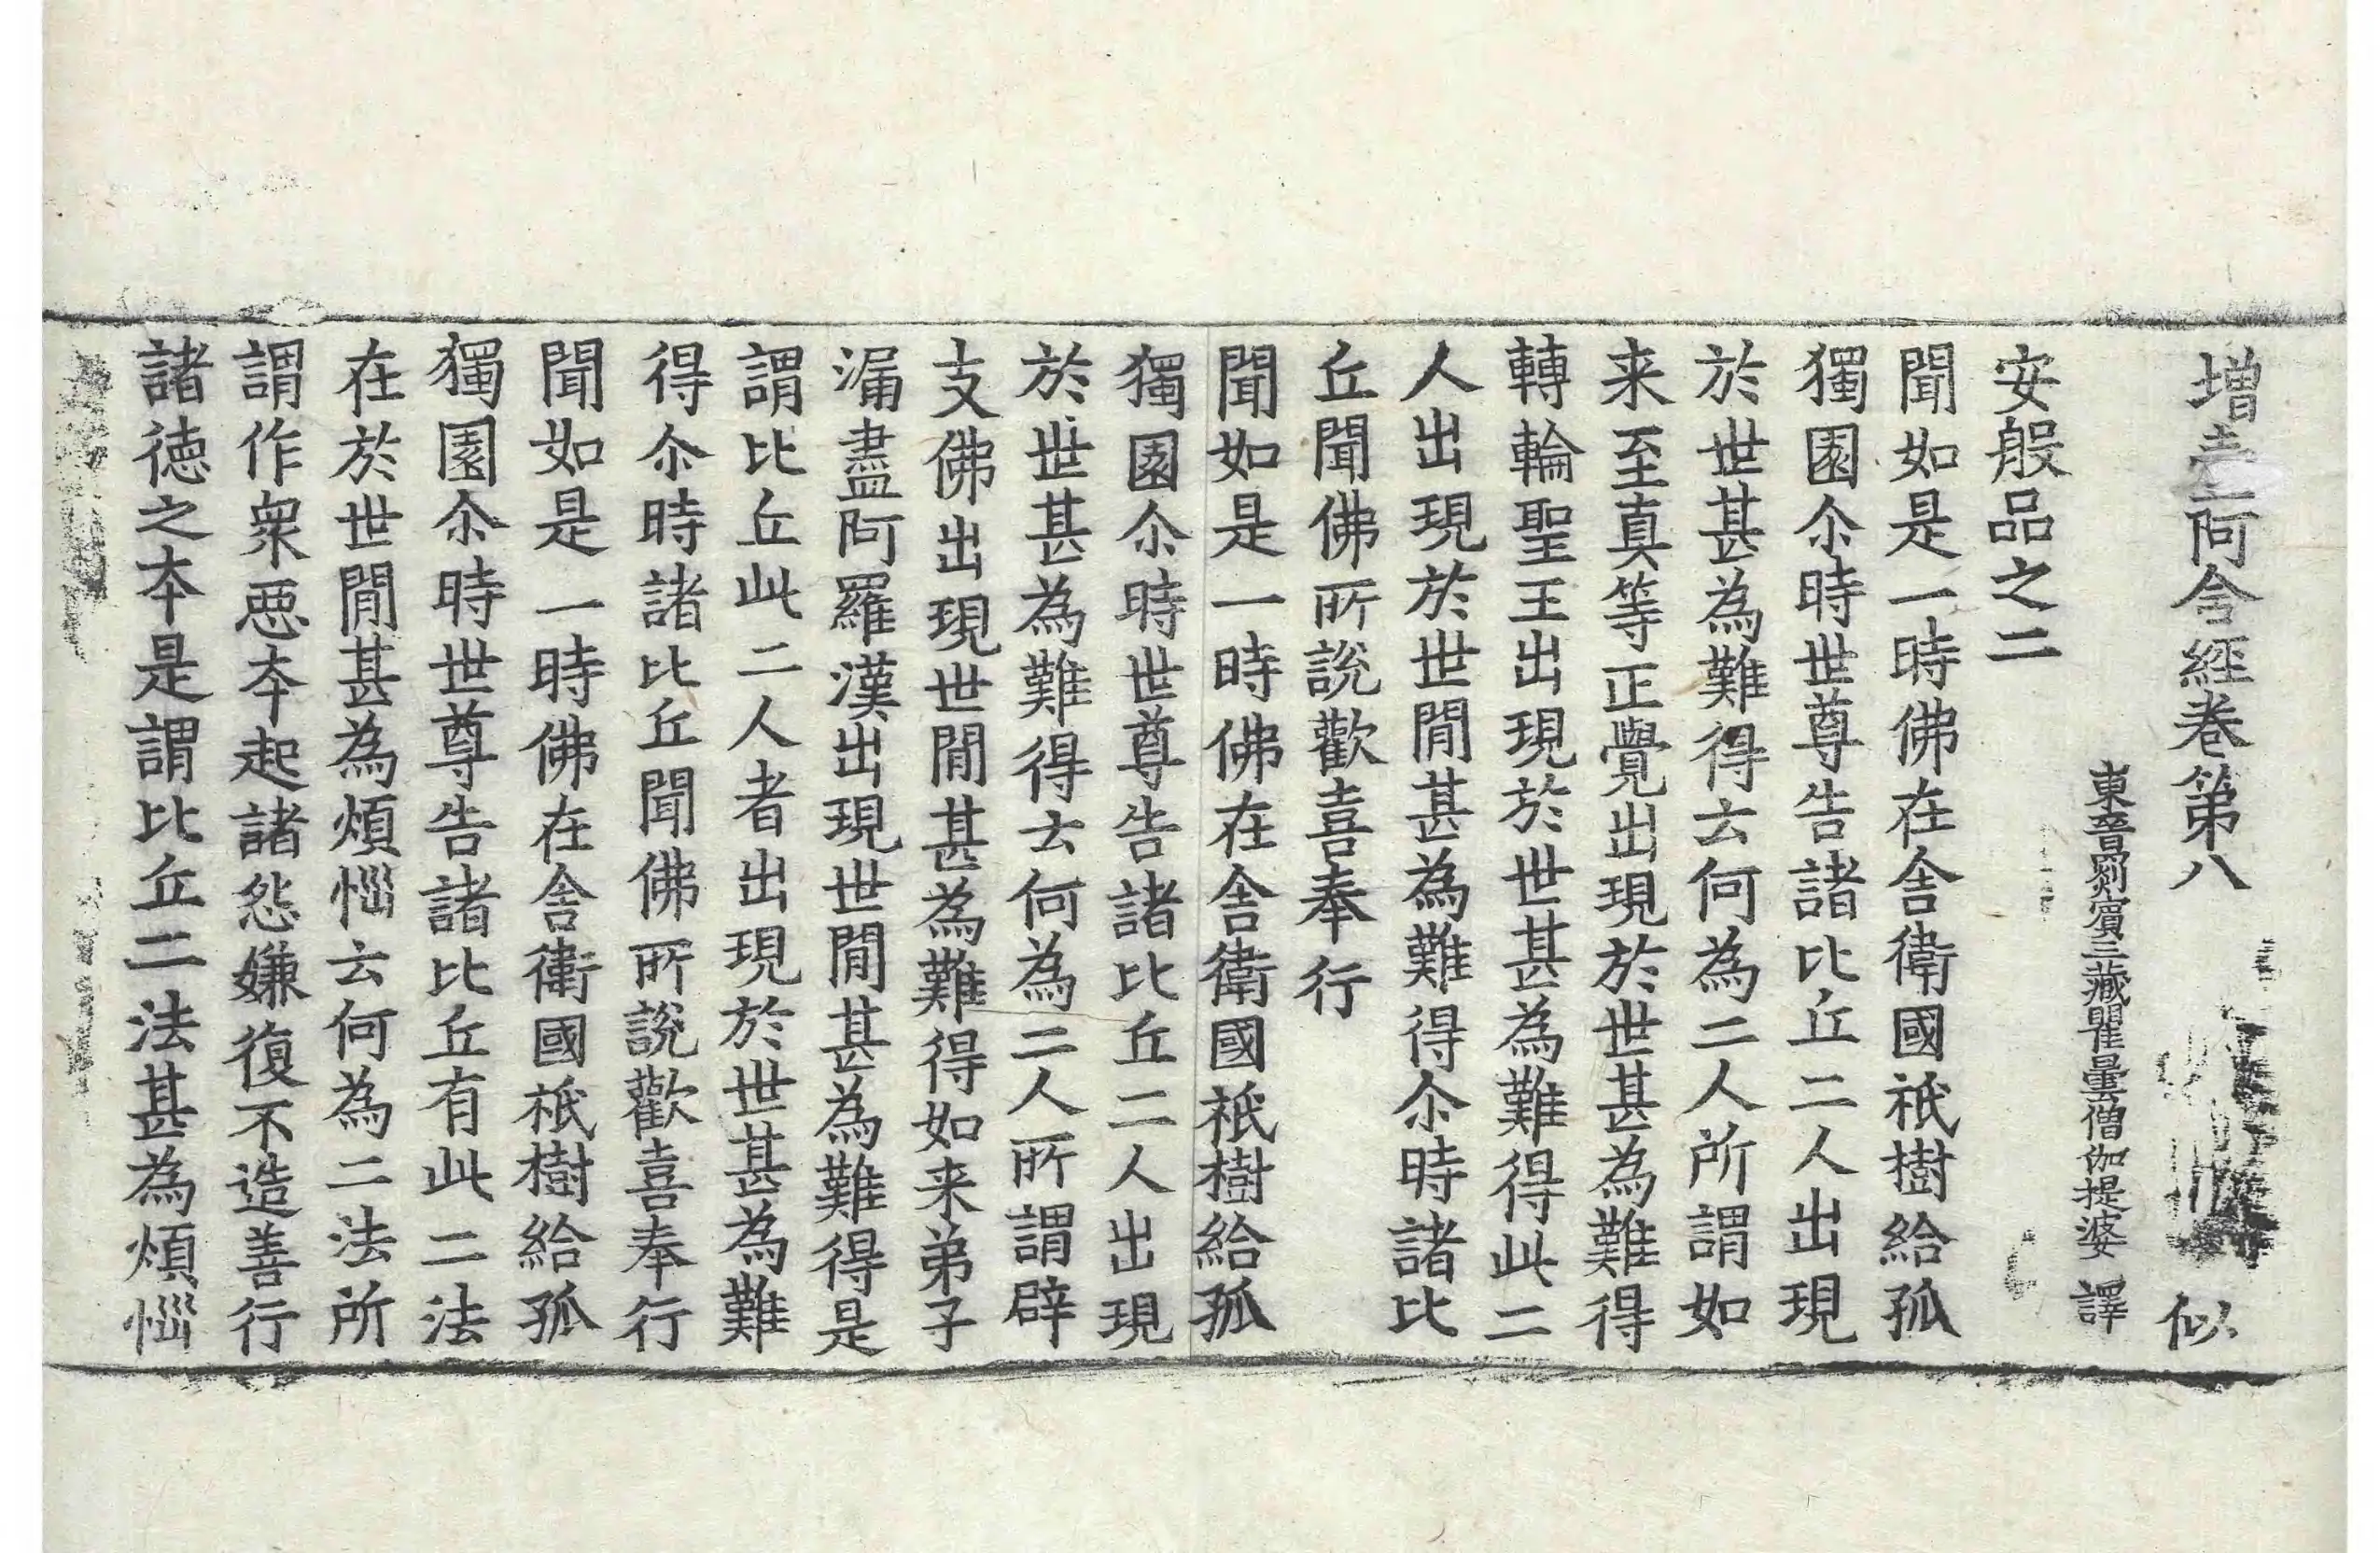 増壹阿含經卷第八 似
東晉罽賓三藏瞿曇僧伽提婆 譯
安般品之二
聞如是一時佛在舍衛國祇樹給孤
獨園尒時世尊告諸比丘二人出現
於世甚為難得云何為二人所謂如
来至真等正覺出現於世甚為難得
轉輪聖王出現於世甚為難得此二
人出現於世閒甚為難得尒時諸比
丘聞佛所說歡喜奉行
聞如是一時佛在舍衛國祇樹給孤
獨園尒時世尊告諸比丘二人出現
於世甚為難得云何為二人所謂辟
支佛出現世閒甚為難得如来弟子
漏盡阿羅漢出現世閒甚為難得是
謂比丘此二人者出現於世甚為難
得尒時諸比丘聞佛所說歡喜奉行
聞如是一時佛在舍衛國祇樹給孤
獨園尒時世尊告諸比丘有此二法
在於世閒甚為煩惱云何為二法所
謂作衆惡本起諸怨嫌復不造善行
諸徳之本是謂比丘二法甚為煩惱